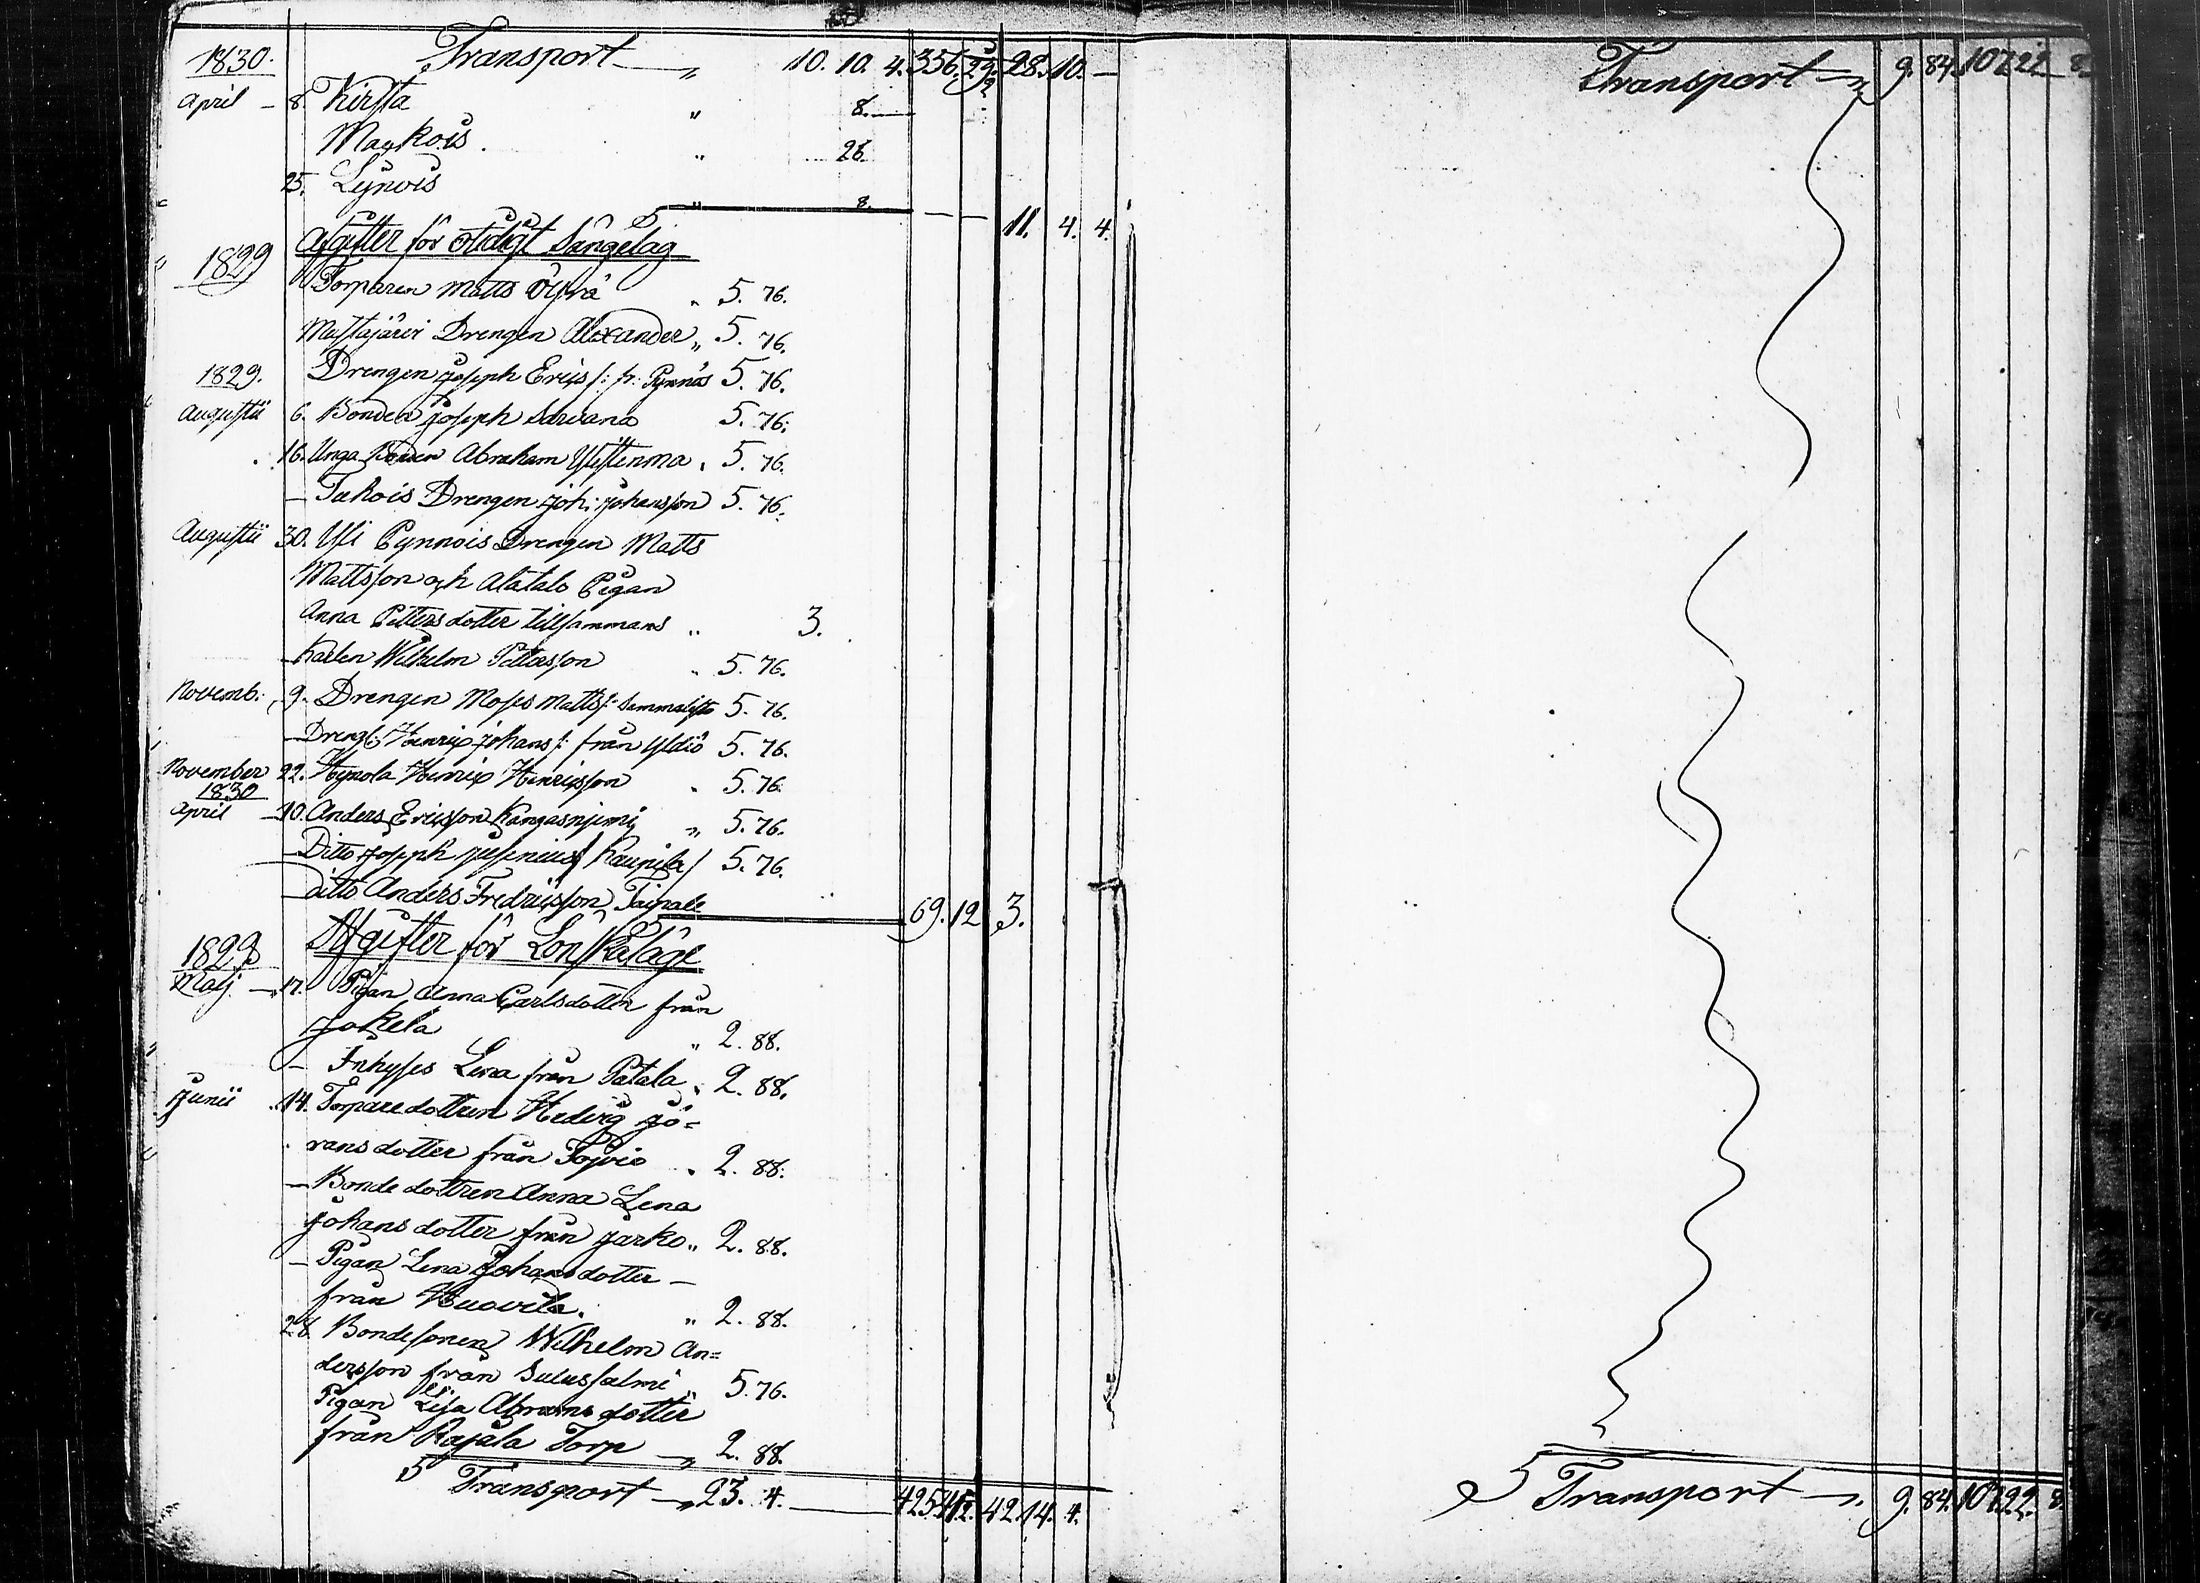 1830. Transport — „ 10. 10. 4. 356. 29. 28. 10. —
April — 8. Kirsta „ 8. —
Markois „ 28
25. Lynois „ 8.
— — 11. 4. 4.
Afgifter för otidigt Sängelag
1829
Torparen Matts „ 5. 76.
Mustajärvi Drengen Alexander „ 5. 76.
1829. Drengen Joseph Erics/: fr: Pynnös 5. 76.
Augustii 6. Bonden Joseph Sarvana 5. 76.
16. Unga Abraham „ 5. 76.
— Tukois Drengen Joh: Johansson 5. 76.
Augustii 30. Yli Pynnois Drengen Matts
Mattsson och Alatalo Pigan
Anna Pettersdotter tillsammans „ 3.
— Karlen Wilhelm Pettersson „ 5. 76.
Novemb: 9. Drengen Moses Matts/: Sammalisto 5. 76.
— Dreng: Henrix Johans/: från Yldiö 5. 76.
November 22. Hynola Henrix Henricsson „ 5. 76.
1830
April — 10. Anders Ericsson Kangasnjemi „ 5. 76.
— Ditto Joseph Josenius/ Kaupila/ 5. 76.
— ditto Anders Fredricsson Taipale
69. 12 3.
Afgifter för Lönskaläge
1829
Maij — 17. Pigan Anna Carlsdotter från
Jokela „ 2. 88.
— Inhyses Lena från Patala „ 2. 88.
Junii 14. Torparedottren Hedvig Jö=
ransdotter från Pojvio „ 2. 88.
— Bondedottren Anna Lena
Johansdotter från Jarko „ 2. 88.
— Pigan Lena Johansdotter —
från „ 2. 88.
28 Bondesonen Wilhelm An=
dersson från Sulussalmi „ 5. 76.
Pigan Lisa Abramsdotter
från Rajala Torp — „ 2. 88.
Transport — „ 23. 4. — 425. 41. 42. 14. 4.
Transport — „ 9. 84. 10 722 8
Transport — „ 9. 84. 10 722. 8